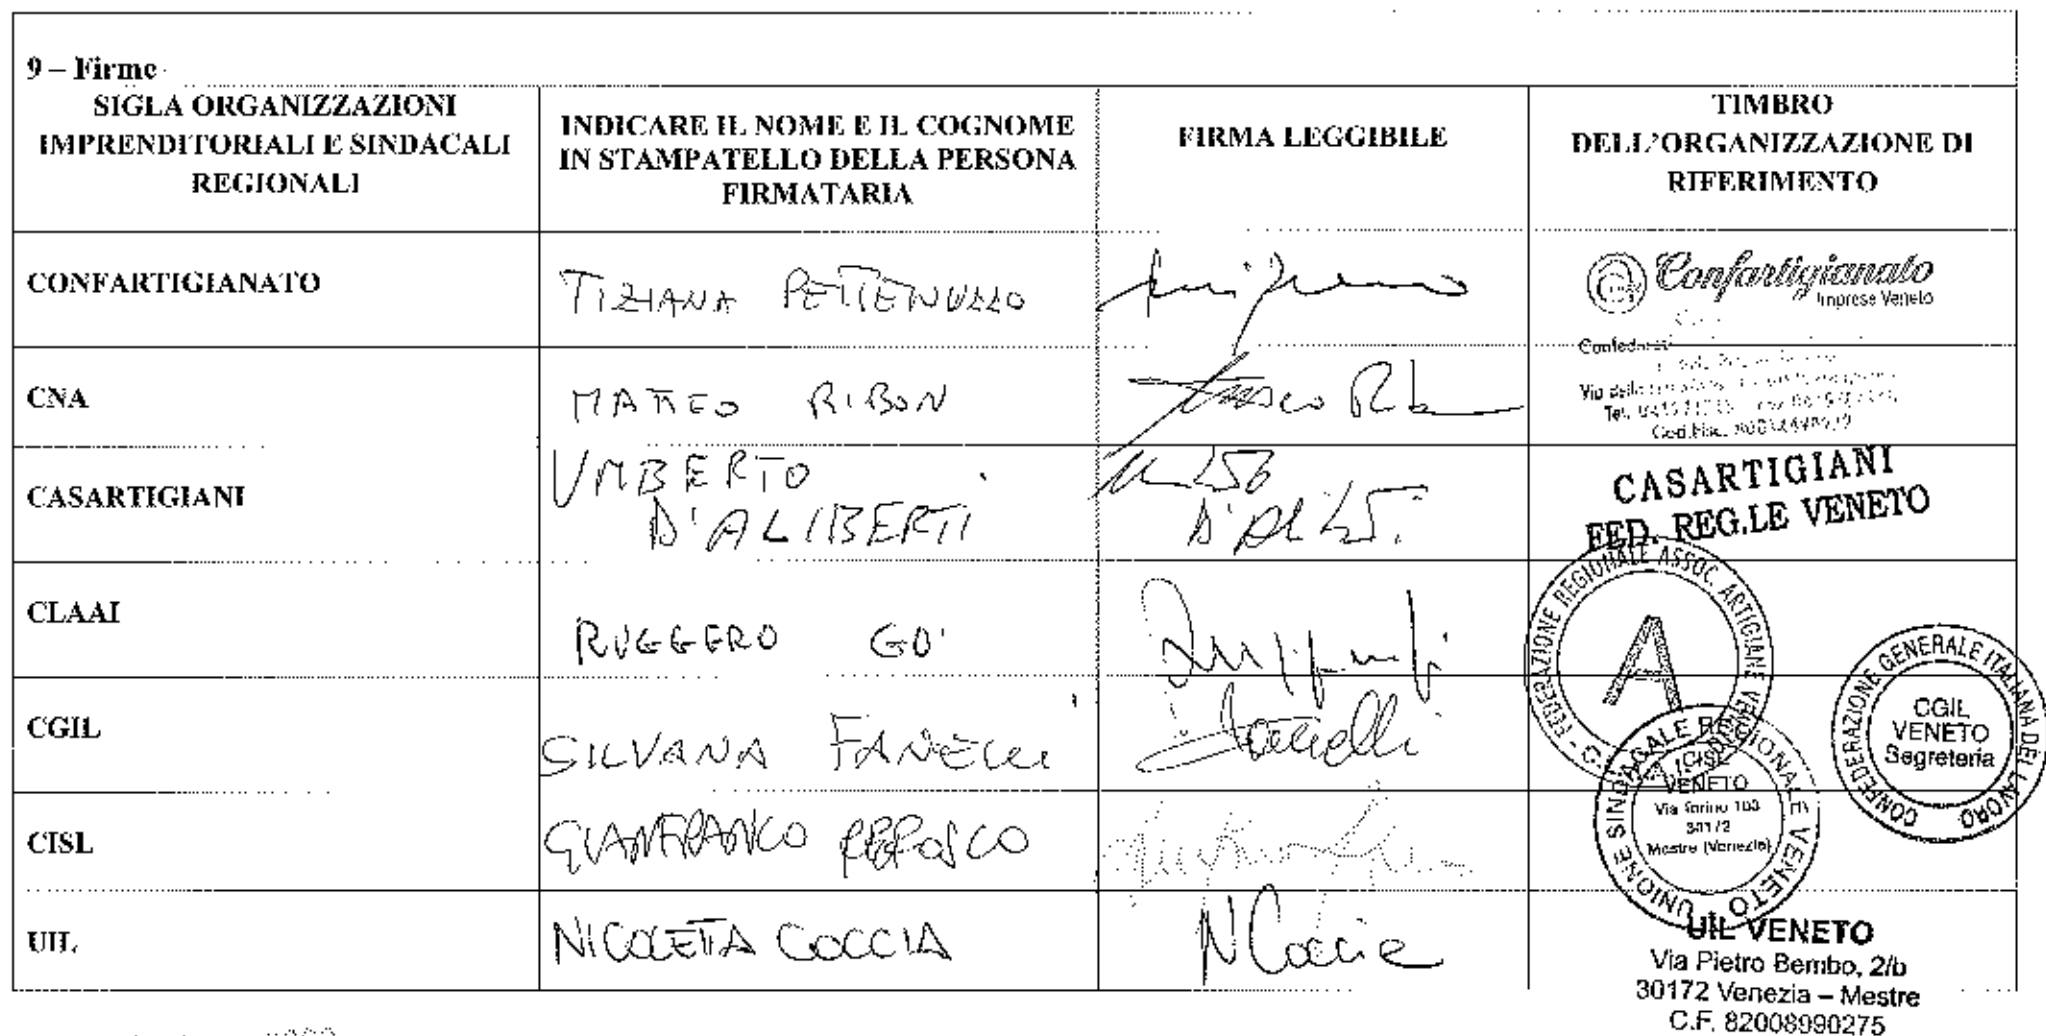 9 – Firme
SIGLA ORGANIZZAZIONI
IMPRENDITORIALI E SINDACALI
REGIONALI
INDICARE IL NOME E IL COGNOME
IN STAMPATELLO DELLA PERSONA
FIRMATARIA
FIRMA LEGGIBILE
TIMBRO
DELL'ORGANIZZAZIONE DI
RIFERIMENTO
CONFARTIGIANATO
TIZIANA PETTENUZZO
Confartigianato
Imprese Veneto
CNA
MATTEO RIBON
Via
Tel.
CASARTIGIANI
UMBERTO
D'ALIBERTI
CASARTIGIANI
FED. REG.LE VENETO
CLAAI
RUGGERO GO'
FEDERAZIONE REGIONALE ASSOC. ARTIGIANE
A
CGIL
SILVANA FANELLI
Fanelli
CONFEDERAZIONE GENERALE ITALIANA DEL LAVORO
CGIL
VENETO
Segreteria
CISL
GIANFRANCO REFOSCO
UNIONE SINDACALE REGIONALE VENETO
CISL
VENETO
Via Torino 103
30172
Mestre (Venezia)
UIL
NICOLETTA COCCIA
N Coccia
UIL VENETO
Via Pietro Bembo, 2/b
30172 Venezia – Mestre
C.F. 82008990275